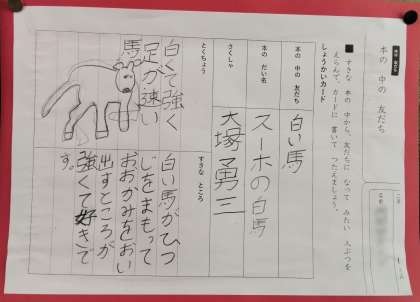 本の 中の 友だち
本の 中の 友だち
■ すきな 本の 中から、友だちに なって みたい 人ぶつを
えらんで、カードに 書いて つたえましょう。
しょうかいカード
本の 中の 友だち
白い馬
本の だい名
スーホの白馬
さくしゃ
大塚勇三
とくちょう
白くて強く
足が速い
馬
すきな ところ
白い馬がひつ
じをまもって
おおかみをおい
出すところが
強くて好きで
す。